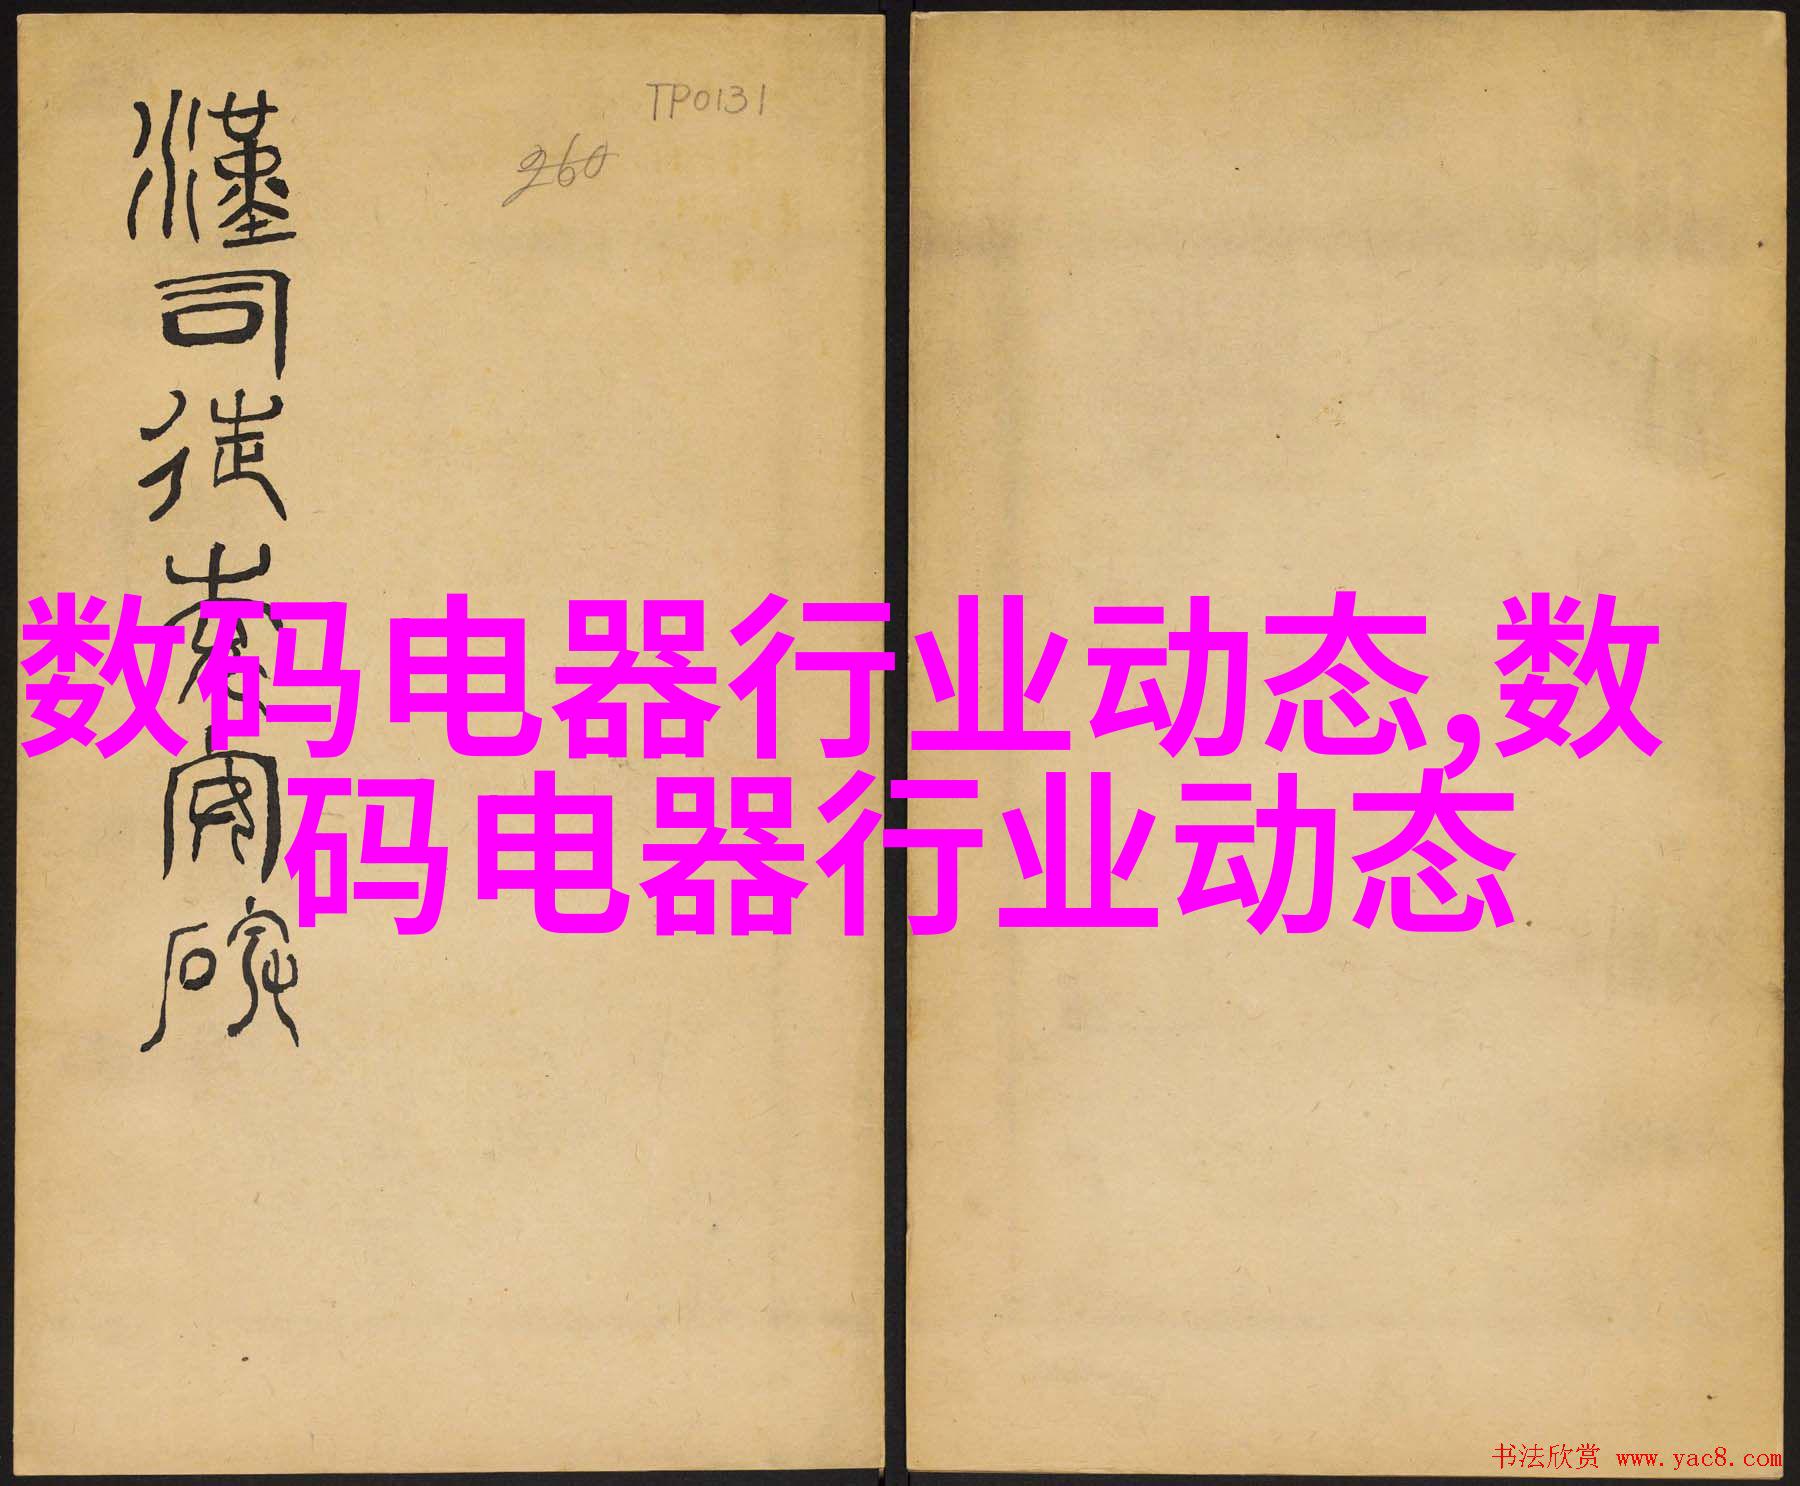 TP0131
260
漢司徒袁安碑
数码电器行业动态,数
码电器行业动态
书法欣赏 www.yac8.com